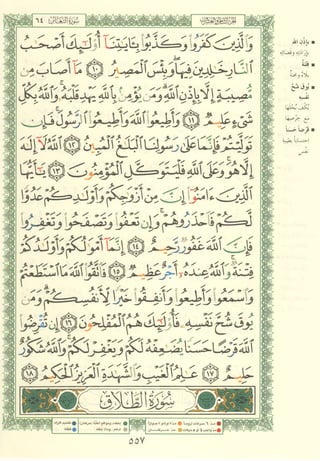 سورة التغابن ٦٤
الجزء الثامن والعشرون
وَالَّذِينَ كَفَرُوا وَكَذَّبُوا بِـَٔايَٰتِنَآ أُو۟لَٰٓئِكَ أَصْحَٰبُ
النَّارِ خَٰلِدِينَ فِيهَا وَبِئْسَ الْمَصِيرُ ١٠ مَآ أَصَابَ مِن
مُّصِيبَةٍ إِلَّا بِإِذْنِ اللَّهِ وَمَن يُؤْمِنۢ بِاللَّهِ يَهْدِ قَلْبَهُۥ وَاللَّهُ بِكُلِّ
شَىْءٍ عَلِيمٌ ١١ وَأَطِيعُوا اللَّهَ وَأَطِيعُوا الرَّسُولَ فَإِن
تَوَلَّيْتُمْ فَإِنَّمَا عَلَىٰ رَسُولِنَا الْبَلَٰغُ الْمُبِينُ ١٢ اللَّهُ لَآ إِلَٰهَ
إِلَّا هُوَ وَعَلَى اللَّهِ فَلْيَتَوَكَّلِ الْمُؤْمِنُونَ ١٣ يَٰٓأَيُّهَا
الَّذِينَ ءَامَنُوٓا إِنَّ مِنْ أَزْوَٰجِكُمْ وَأَوْلَٰدِكُمْ عَدُوًّا
لَّكُمْ فَاحْذَرُوهُمْ وَإِن تَعْفُوا وَتَصْفَحُوا وَتَغْفِرُوا
فَإِنَّ اللَّهَ غَفُورٌ رَّحِيمٌ ١٤ إِنَّمَآ أَمْوَٰلُكُمْ وَأَوْلَٰدُكُمْ
فِتْنَةٌ وَاللَّهُ عِندَهُۥٓ أَجْرٌ عَظِيمٌ ١٥ فَاتَّقُوا اللَّهَ مَا اسْتَطَعْتُمْ
وَاسْمَعُوا وَأَطِيعُوا وَأَنفِقُوا خَيْرًا لِّأَنفُسِكُمْ وَمَن
يُوقَ شُحَّ نَفْسِهِۦ فَأُو۟لَٰٓئِكَ هُمُ الْمُفْلِحُونَ ١٦ إِن تُقْرِضُوا
اللَّهَ قَرْضًا حَسَنًا يُضَٰعِفْهُ لَكُمْ وَيَغْفِرْ لَكُمْ وَاللَّهُ شَكُورٌ
حَلِيمٌ ١٧ عَٰلِمُ الْغَيْبِ وَالشَّهَٰدَةِ الْعَزِيزُ الْحَكِيمُ ١٨
سُورَةُ الطَّلَاقِ
٥٥٧
بإذن الله
فتنة
يوق شح
نفسه
قرضا حسنا